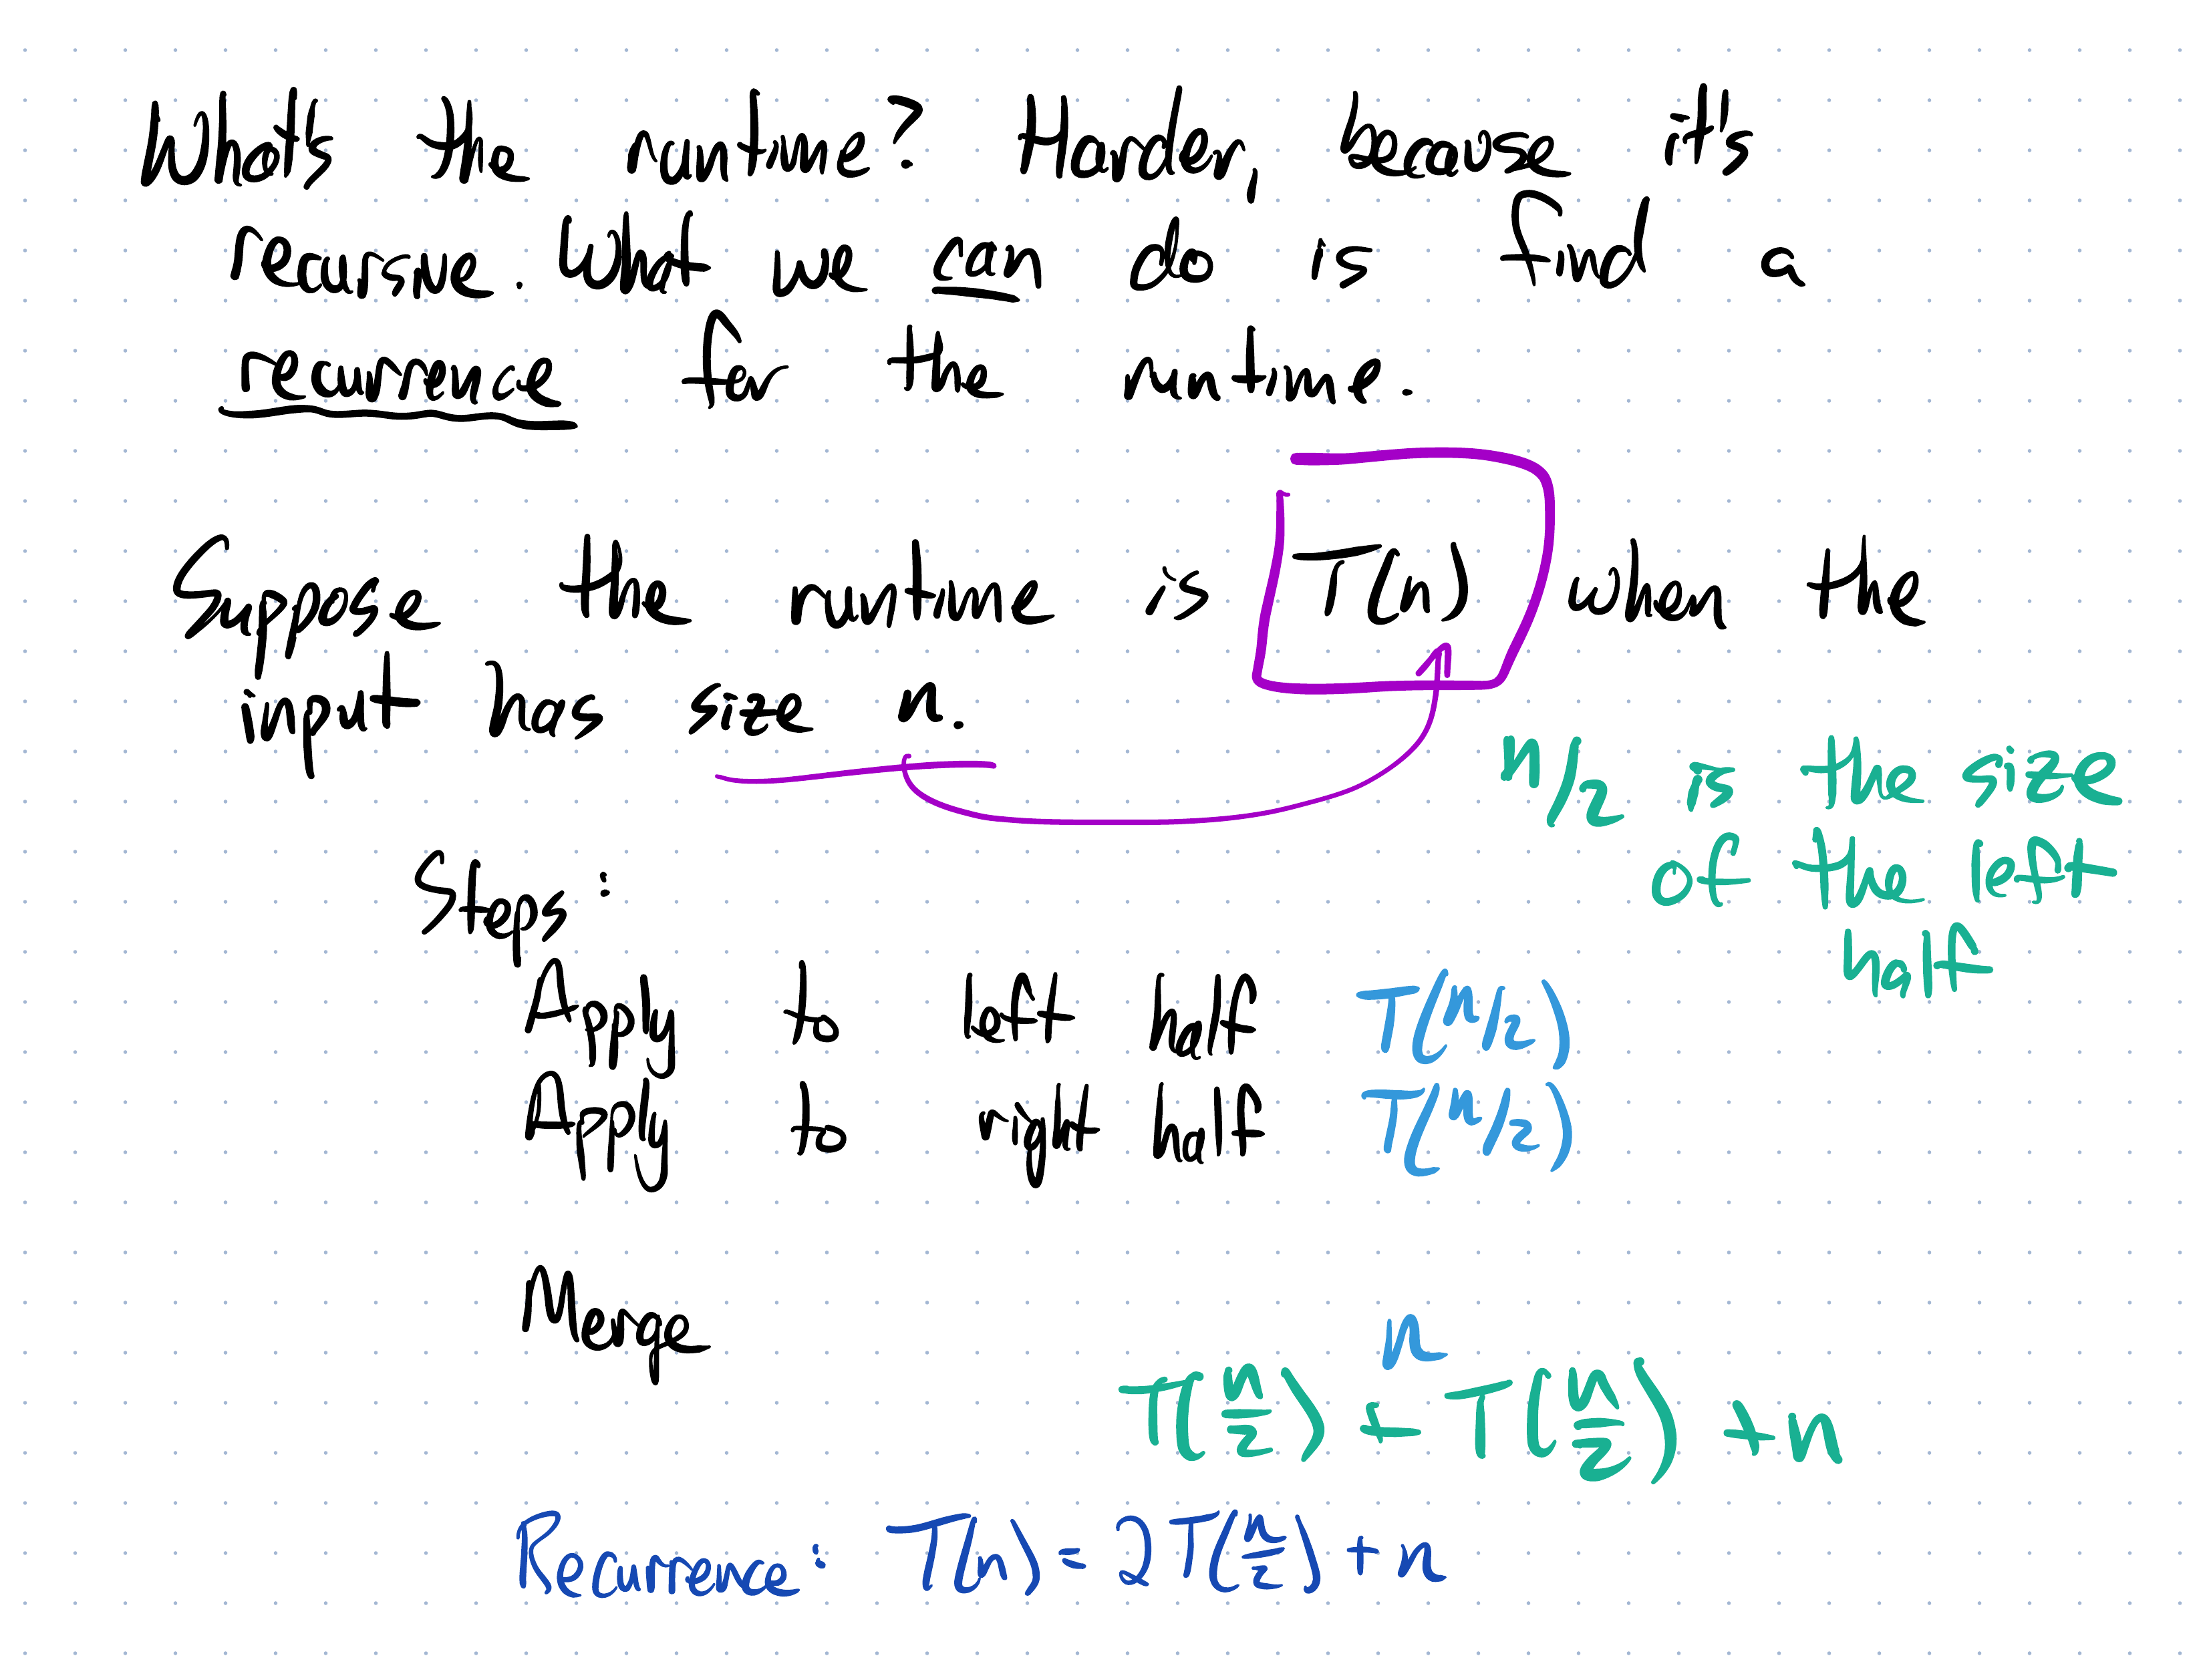 What's the runtime? Harder, because it's
recursive. What we can do is find a
recurrence for the runtime.
Suppose the runtime is T(n) when the
input has size n.
n/2 is the size
of the left
half
Steps:
Apply to left half T(n/2)
Apply to right half T(n/2)
Merge n
T(n/2) + T(n/2) + n
Recurrence: T(n) = 2T(n/2) + n